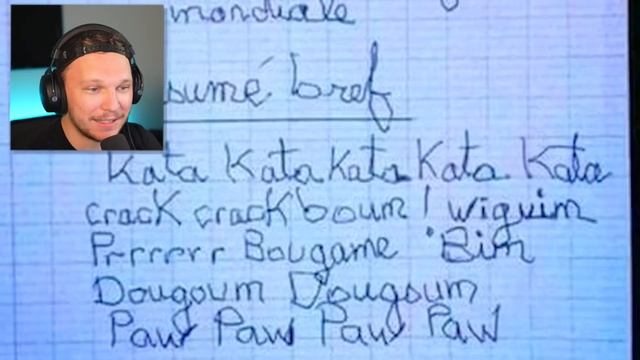 mondiale
sumé bref
Kata Kata Kata Kata Kata
crack crack boum ! wiguim
Prrrrrr Bougame Bim
Dougoum Dougoum
Paw Paw Paw Paw